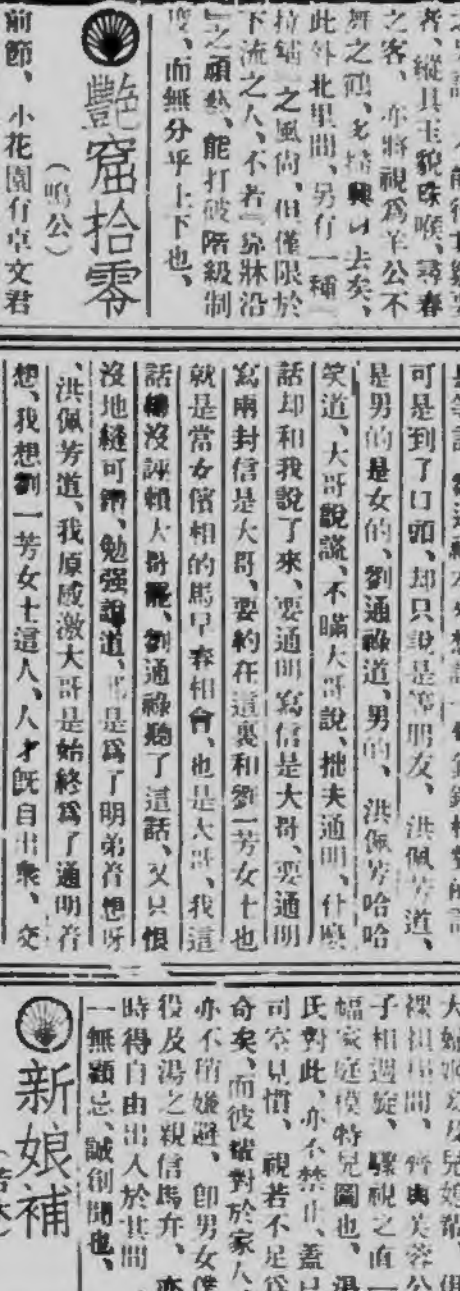 者、縱具玉貌珠喉、尋春
之客、亦將視爲羊公不
舞之鶴、多掃興以去矣、
此外北里間、另有一種
之風尙、但僅限於
下流之人、不若
之頑, 能打破階級制
度、而無分乎上下也、
艷窟拾零
(鳴公)
前節、小花園有卓文君
可是到了口頭、却只說是等朋友、洪佩芳道、
是男的是女的、劉通祿道、男的、洪佩芳哈哈
笑道、大哥說謊、不瞞大哥說、拙夫通明、什麼
話却和我說了來、要通明寫信是大哥、要通明
寫兩封信是大哥、要約在這裏和劉一芳女士也
就是當女儐相的馬早春相會、也是大哥、我這
話沒誣賴大哥罷、劉通祿聽了這話、又只恨
沒地縫可鑽、勉強說道、也是爲了明弟着想呀
、洪佩芳道、我原感激大哥是始終爲了通明着
想、我想劉一芳女士這人、人才旣自出衆、交
大婦
裸裎出間、
子相週旋、驟視之直一
幅家庭模特兒圖也、湯
氏對此、亦不禁止、蓋已
司空見慣、視若不足爲
奇矣、而彼輩對於家人、
亦不稍嫌避、卽男女僕
役及湯之親信馬弁、亦
時得自由出入於其間、
一無顧忌、誠創聞也、
新娘補